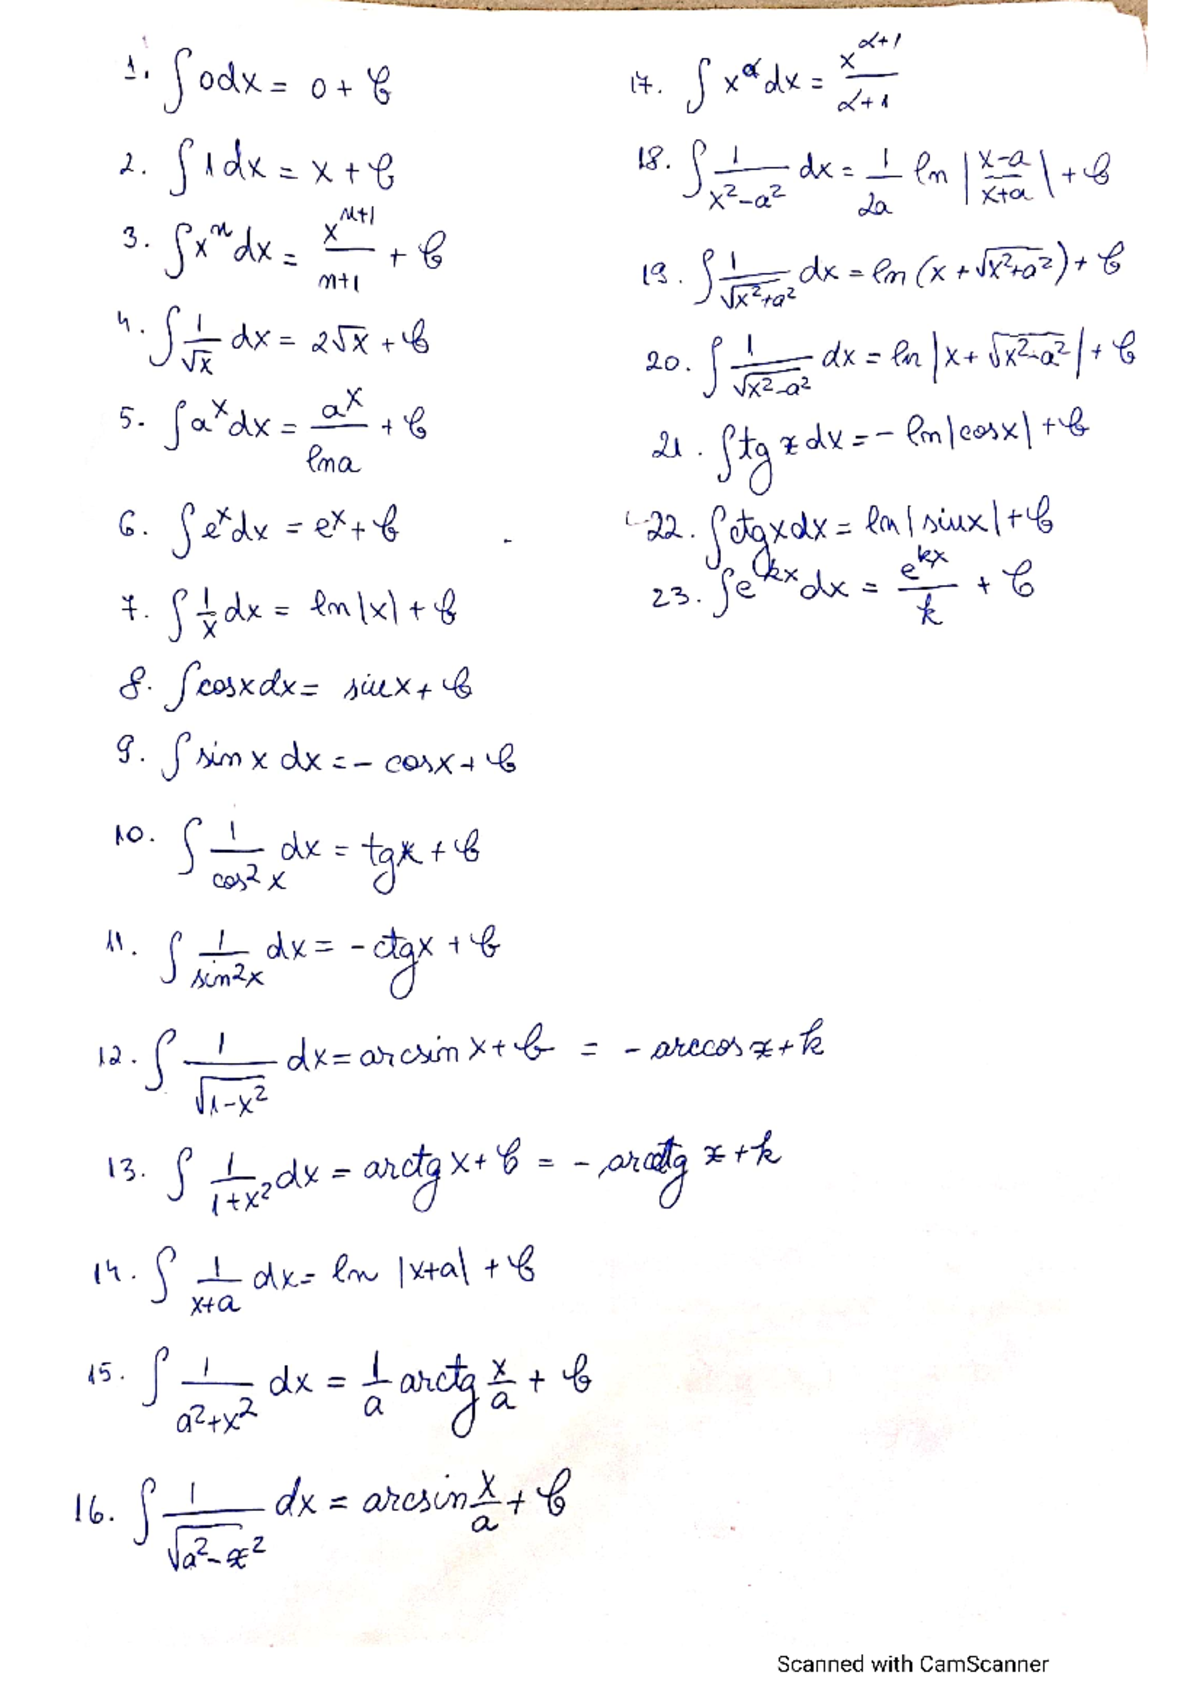 1. ∫ 0dx = 0 + C
2. ∫ 1 dx = x + C
3. ∫ xⁿ dx = xⁿ⁺¹/n+1 + C
4. ∫ 1/√x dx = 2√x + C
5. ∫ aˣ dx = aˣ/ln a + C
6. ∫ eˣ dx = eˣ + C
7. ∫ 1/x dx = ln |x| + C
8. ∫ cosx dx = sinx + C
9. ∫ sin x dx = - cosx + C
10. ∫ 1/cos² x dx = tgx + C
11. ∫ 1/sin²x dx = - ctgx + C
12. ∫ 1/√1-x² dx = arcsin x + C = - arccos x + k
13. ∫ 1/1+x² dx = arctg x + C = - arcctg x + k
14. ∫ 1/x+a dx = ln |x+a| + C
15. ∫ 1/a²+x² dx = 1/a arctg x/a + C
16. ∫ 1/√a²-x² dx = arcsin x/a + C
17. ∫ x^α dx = x^α+1/α+1
18. ∫ 1/x²-a² dx = 1/2a ln |x-a/x+a| + C
19. ∫ 1/√x²+a² dx = ln (x + √x²+a²) + C
20. ∫ 1/√x²-a² dx = ln |x + √x²-a²| + C
21. ∫ tg x dx = - ln |cosx| + C
22. ∫ ctgx dx = ln |sinx| + C
23. ∫ e^kx dx = e^kx/k + C
Scanned with CamScanner